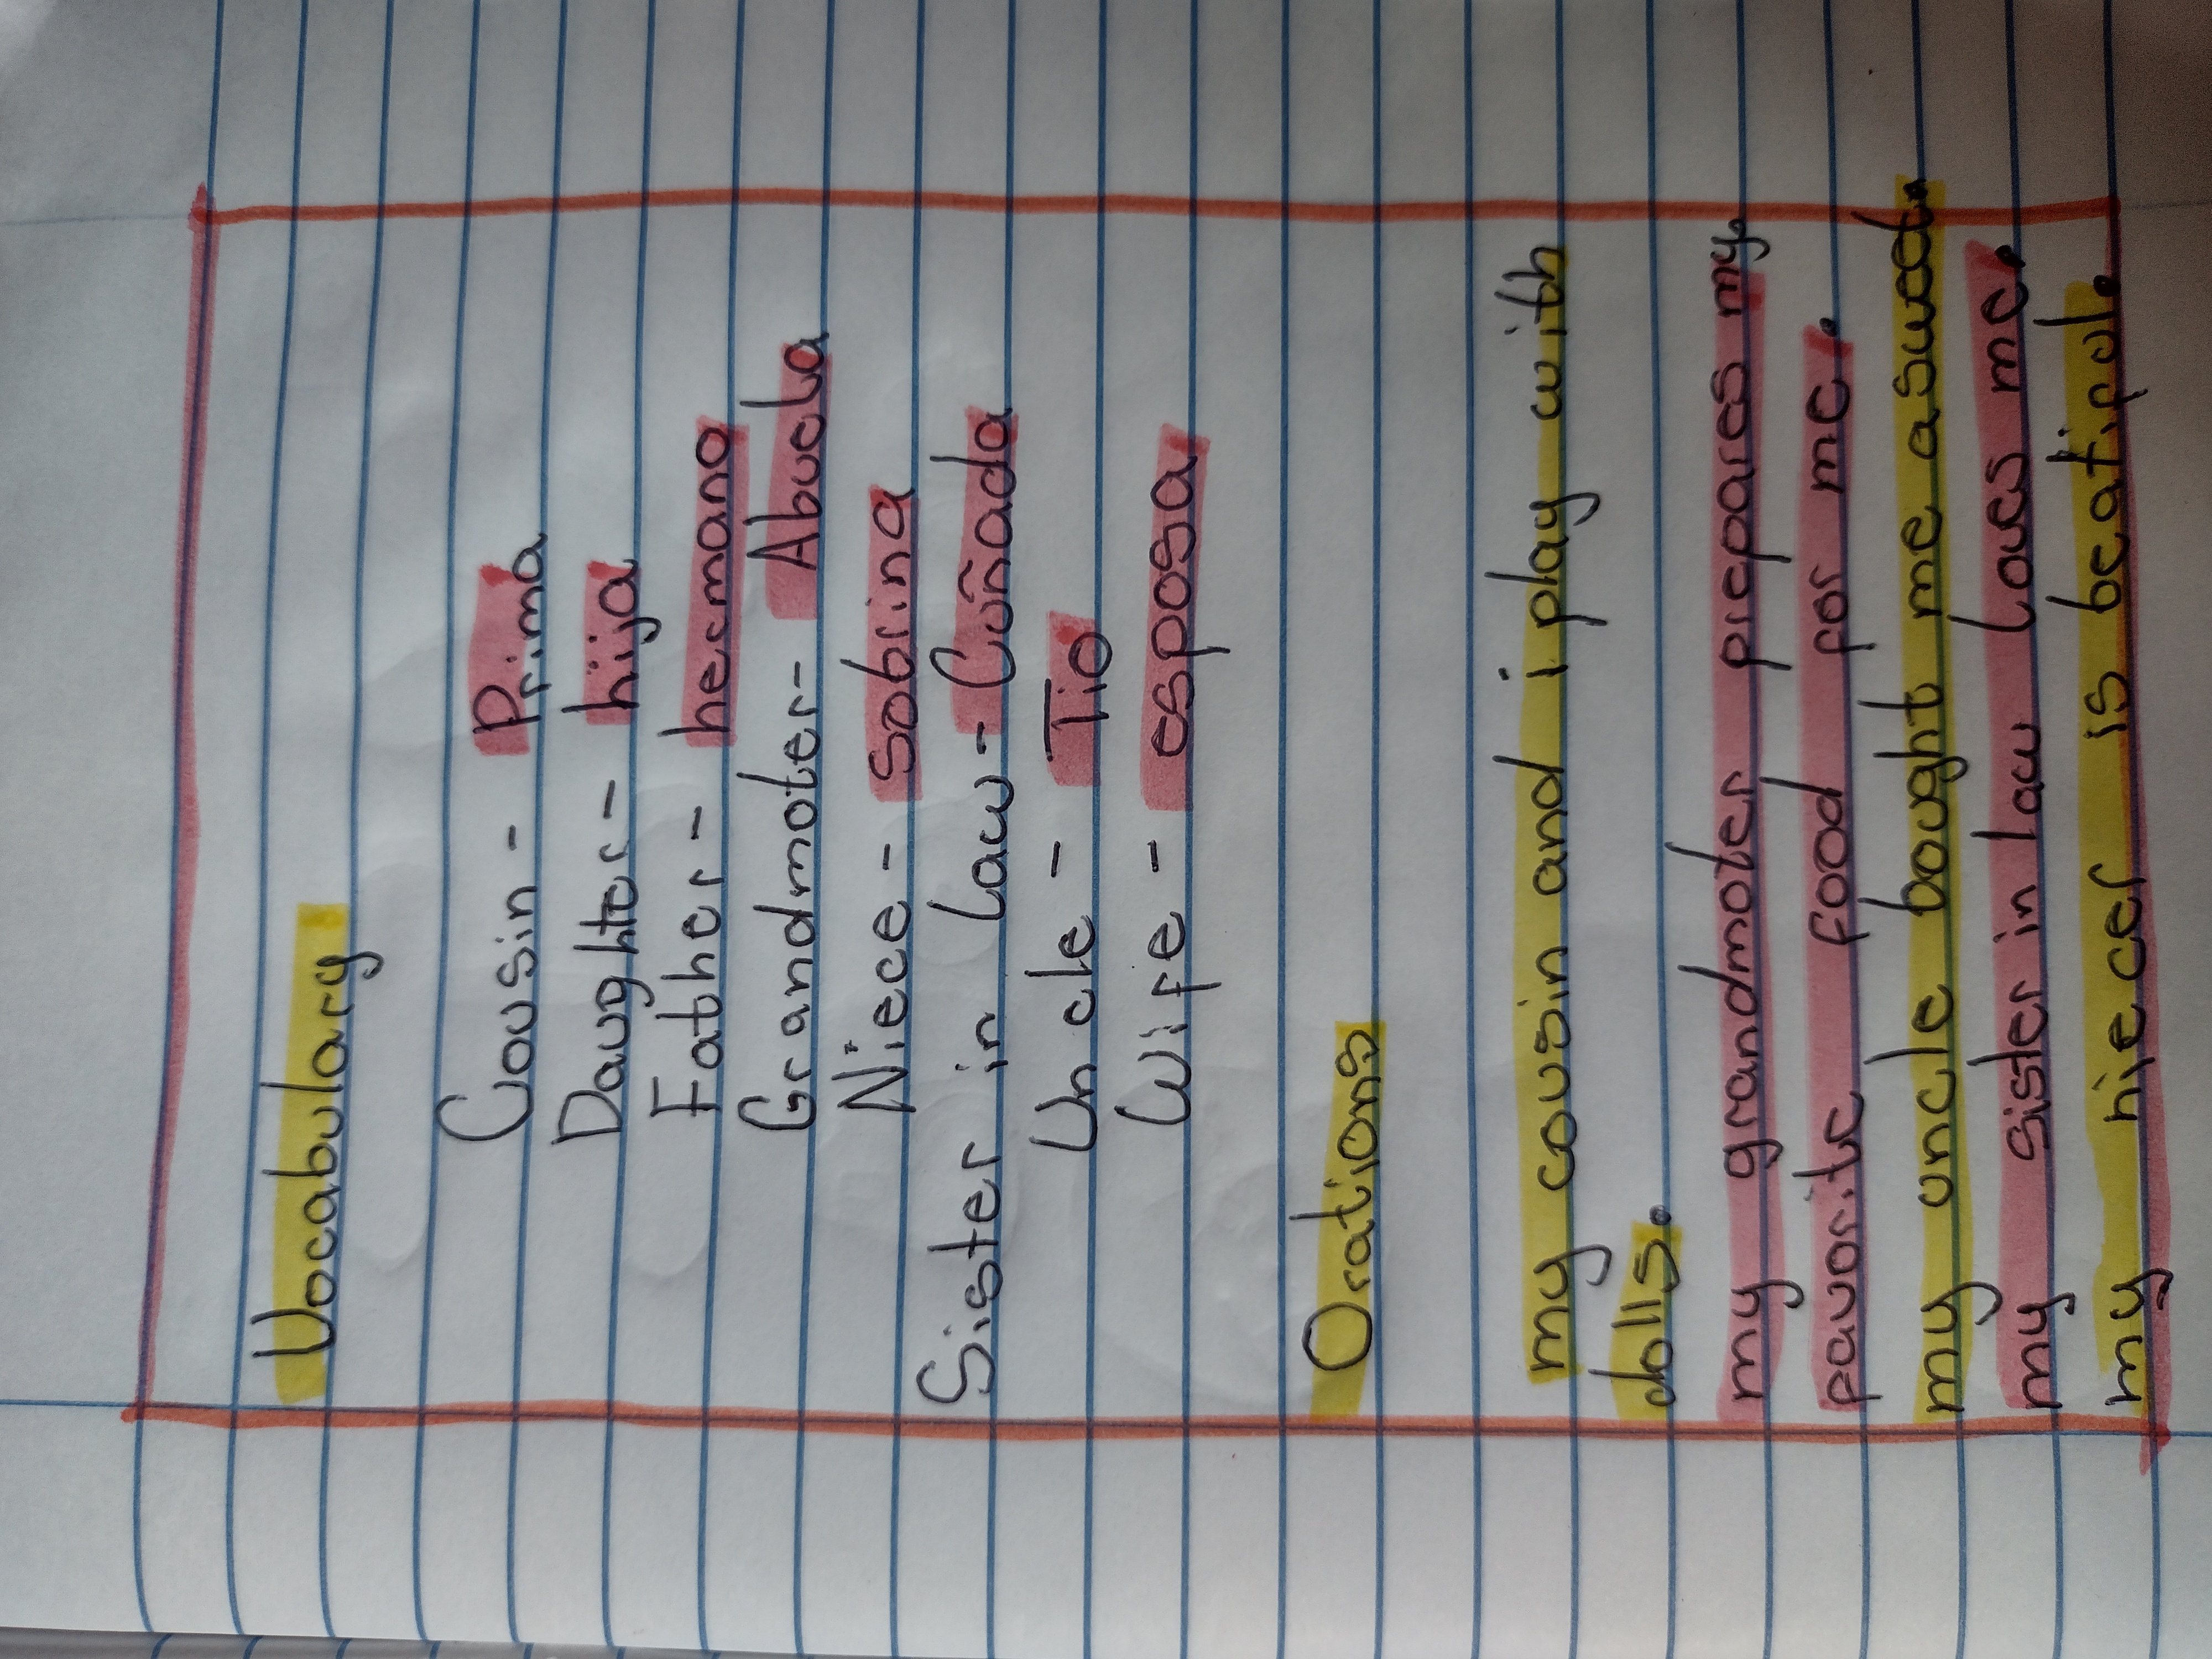 Vocabulary
Cousin - Prima
Daughter - hija
Father - hermano
Grandmoter - Abuela
Niece - sobrina
Sister in law - Cuñada
Uncle - Tio
Wife - esposa
Orations
my cousin and i play with
dolls.
my grandmoter prepares my.
favorite food for me.
my uncle bought me a sweet.
my sister in law loves me.
my niecer is beatiful.